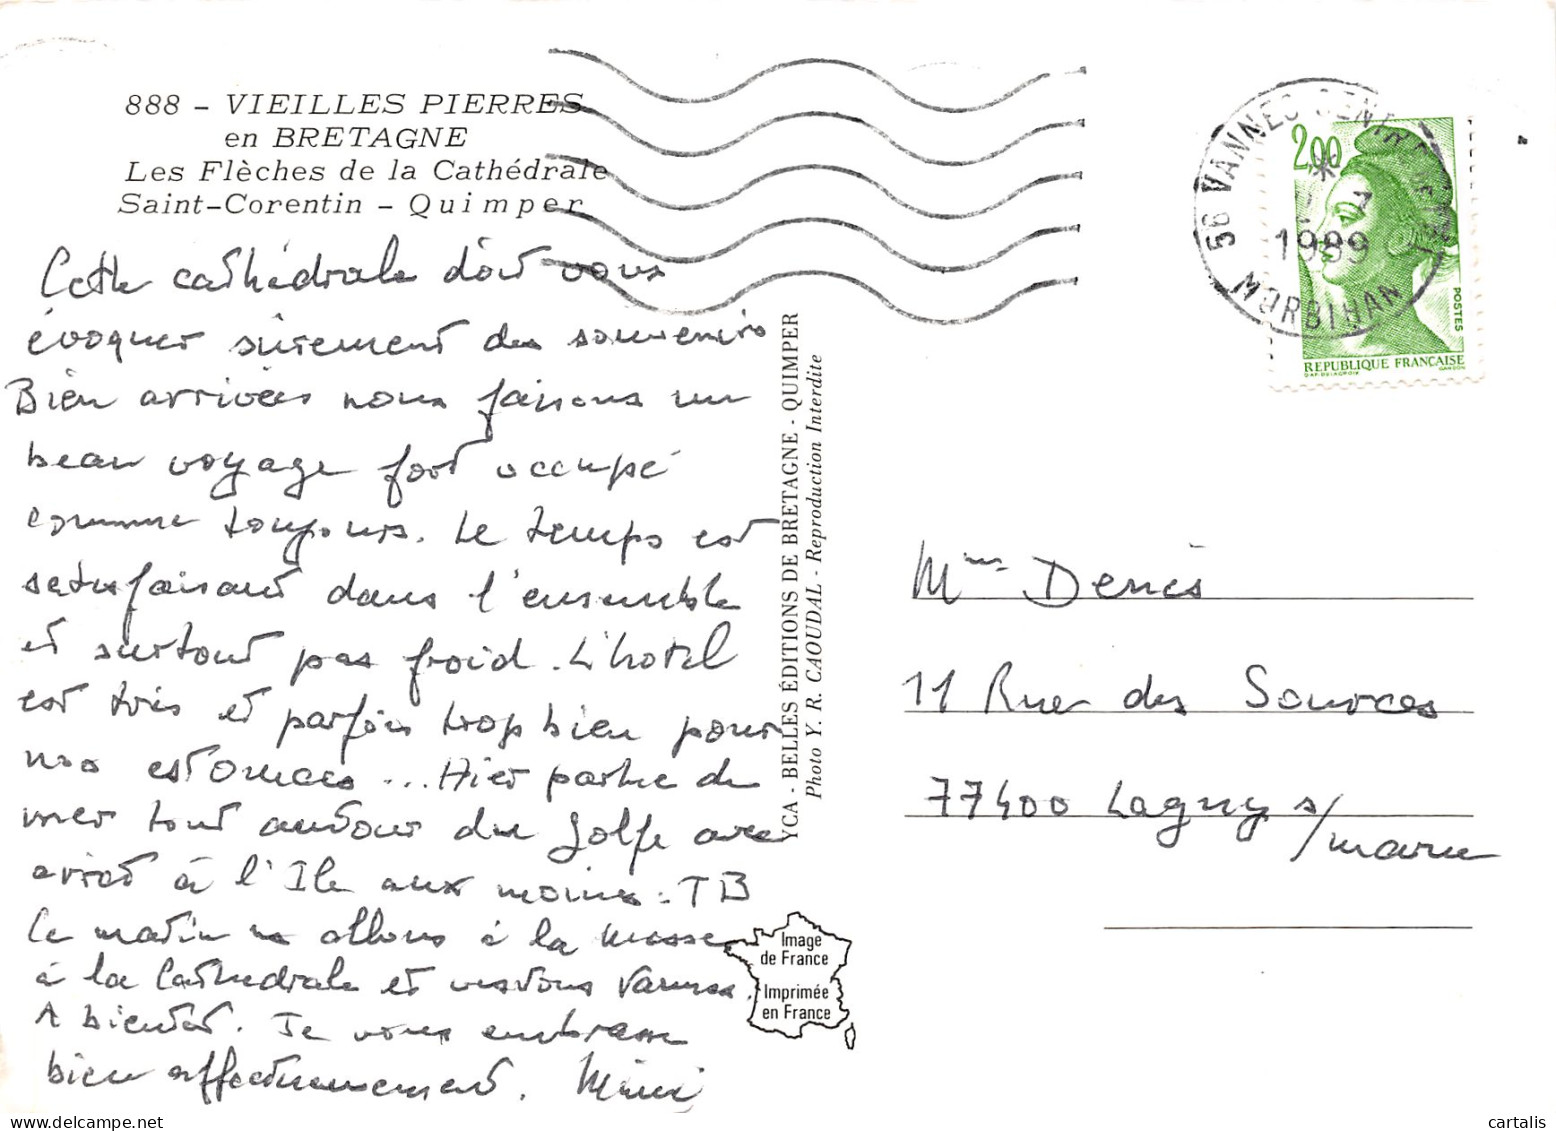 888 - VIEILLES PIERRES
en BRETAGNE
Les Flèches de la Cathédrale
Saint-Corentin - Quimper
Cette cathédrale doit vous
évoquer sûrement des souvenirs
Bien arrivées nous faisons un
beau voyage fort occupé
comme toujours. Le temps est
satisfaisant dans l'ensemble
et surtout pas froid. L'hotel
est très et parfois trop bien pour
nos estomacs ... Hier partie de
mer tout autour du golfe avec
arrêt à l'Ile aux moines. TB
Ce matin ns allons à la messe
à la Cathédrale et visitons Vannes.
A bientôt. Je vous embrasse
bien affectueusement. Mimi
YCA - BELLES ÉDITIONS DE BRETAGNE - QUIMPER
Photo Y. R. CAOUDAL - Reproduction Interdite
Image
de France
Imprimée
en France
56 VANNES CENTRE
1989
MORBIHAN
2,00
POSTES
REPUBLIQUE FRANÇAISE
Mme Denis
11 Rue des Sources
77400 Lagny s/
marne
www.delcampe.net
cartalis